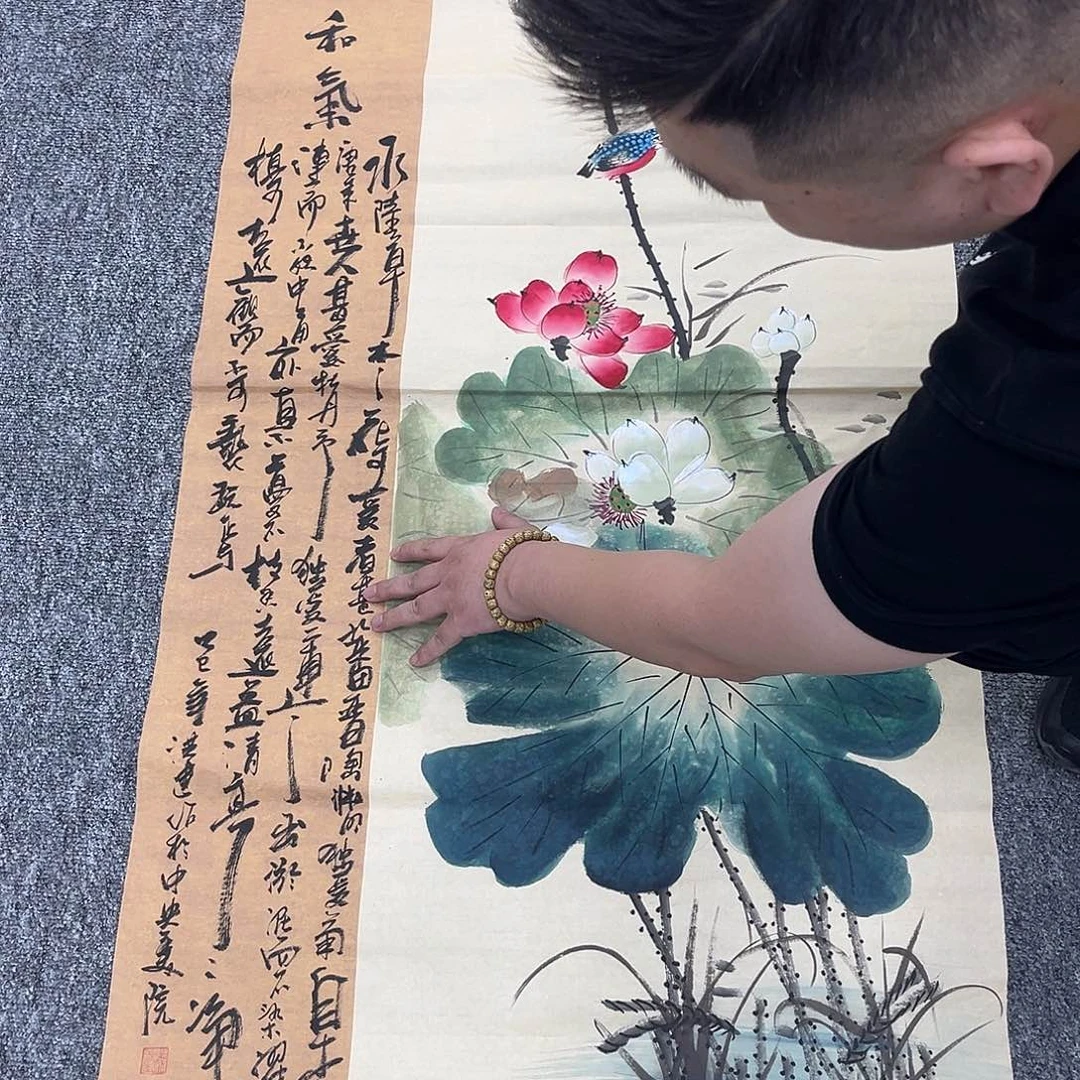 和氣
水陸草木之花可愛者甚蕃晉陶淵明獨愛菊自李
唐来世人甚愛牡丹予獨愛蓮之出淤泥而不染濯
漣而不妖中通外直不蔓不枝香遠益清亭亭净
植可遠觀而不可褻玩焉
乙巳年 作於中央美院